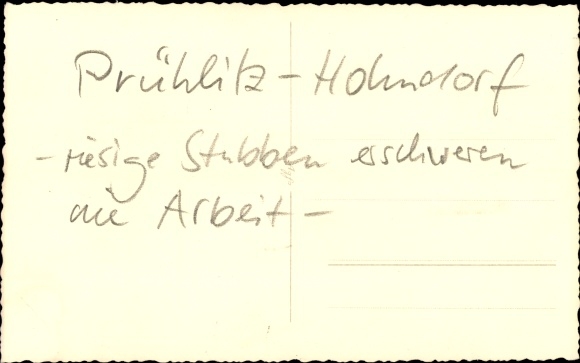 Prühlitz - Hohndorf
- riesige Stubben erschweren
die Arbeit -